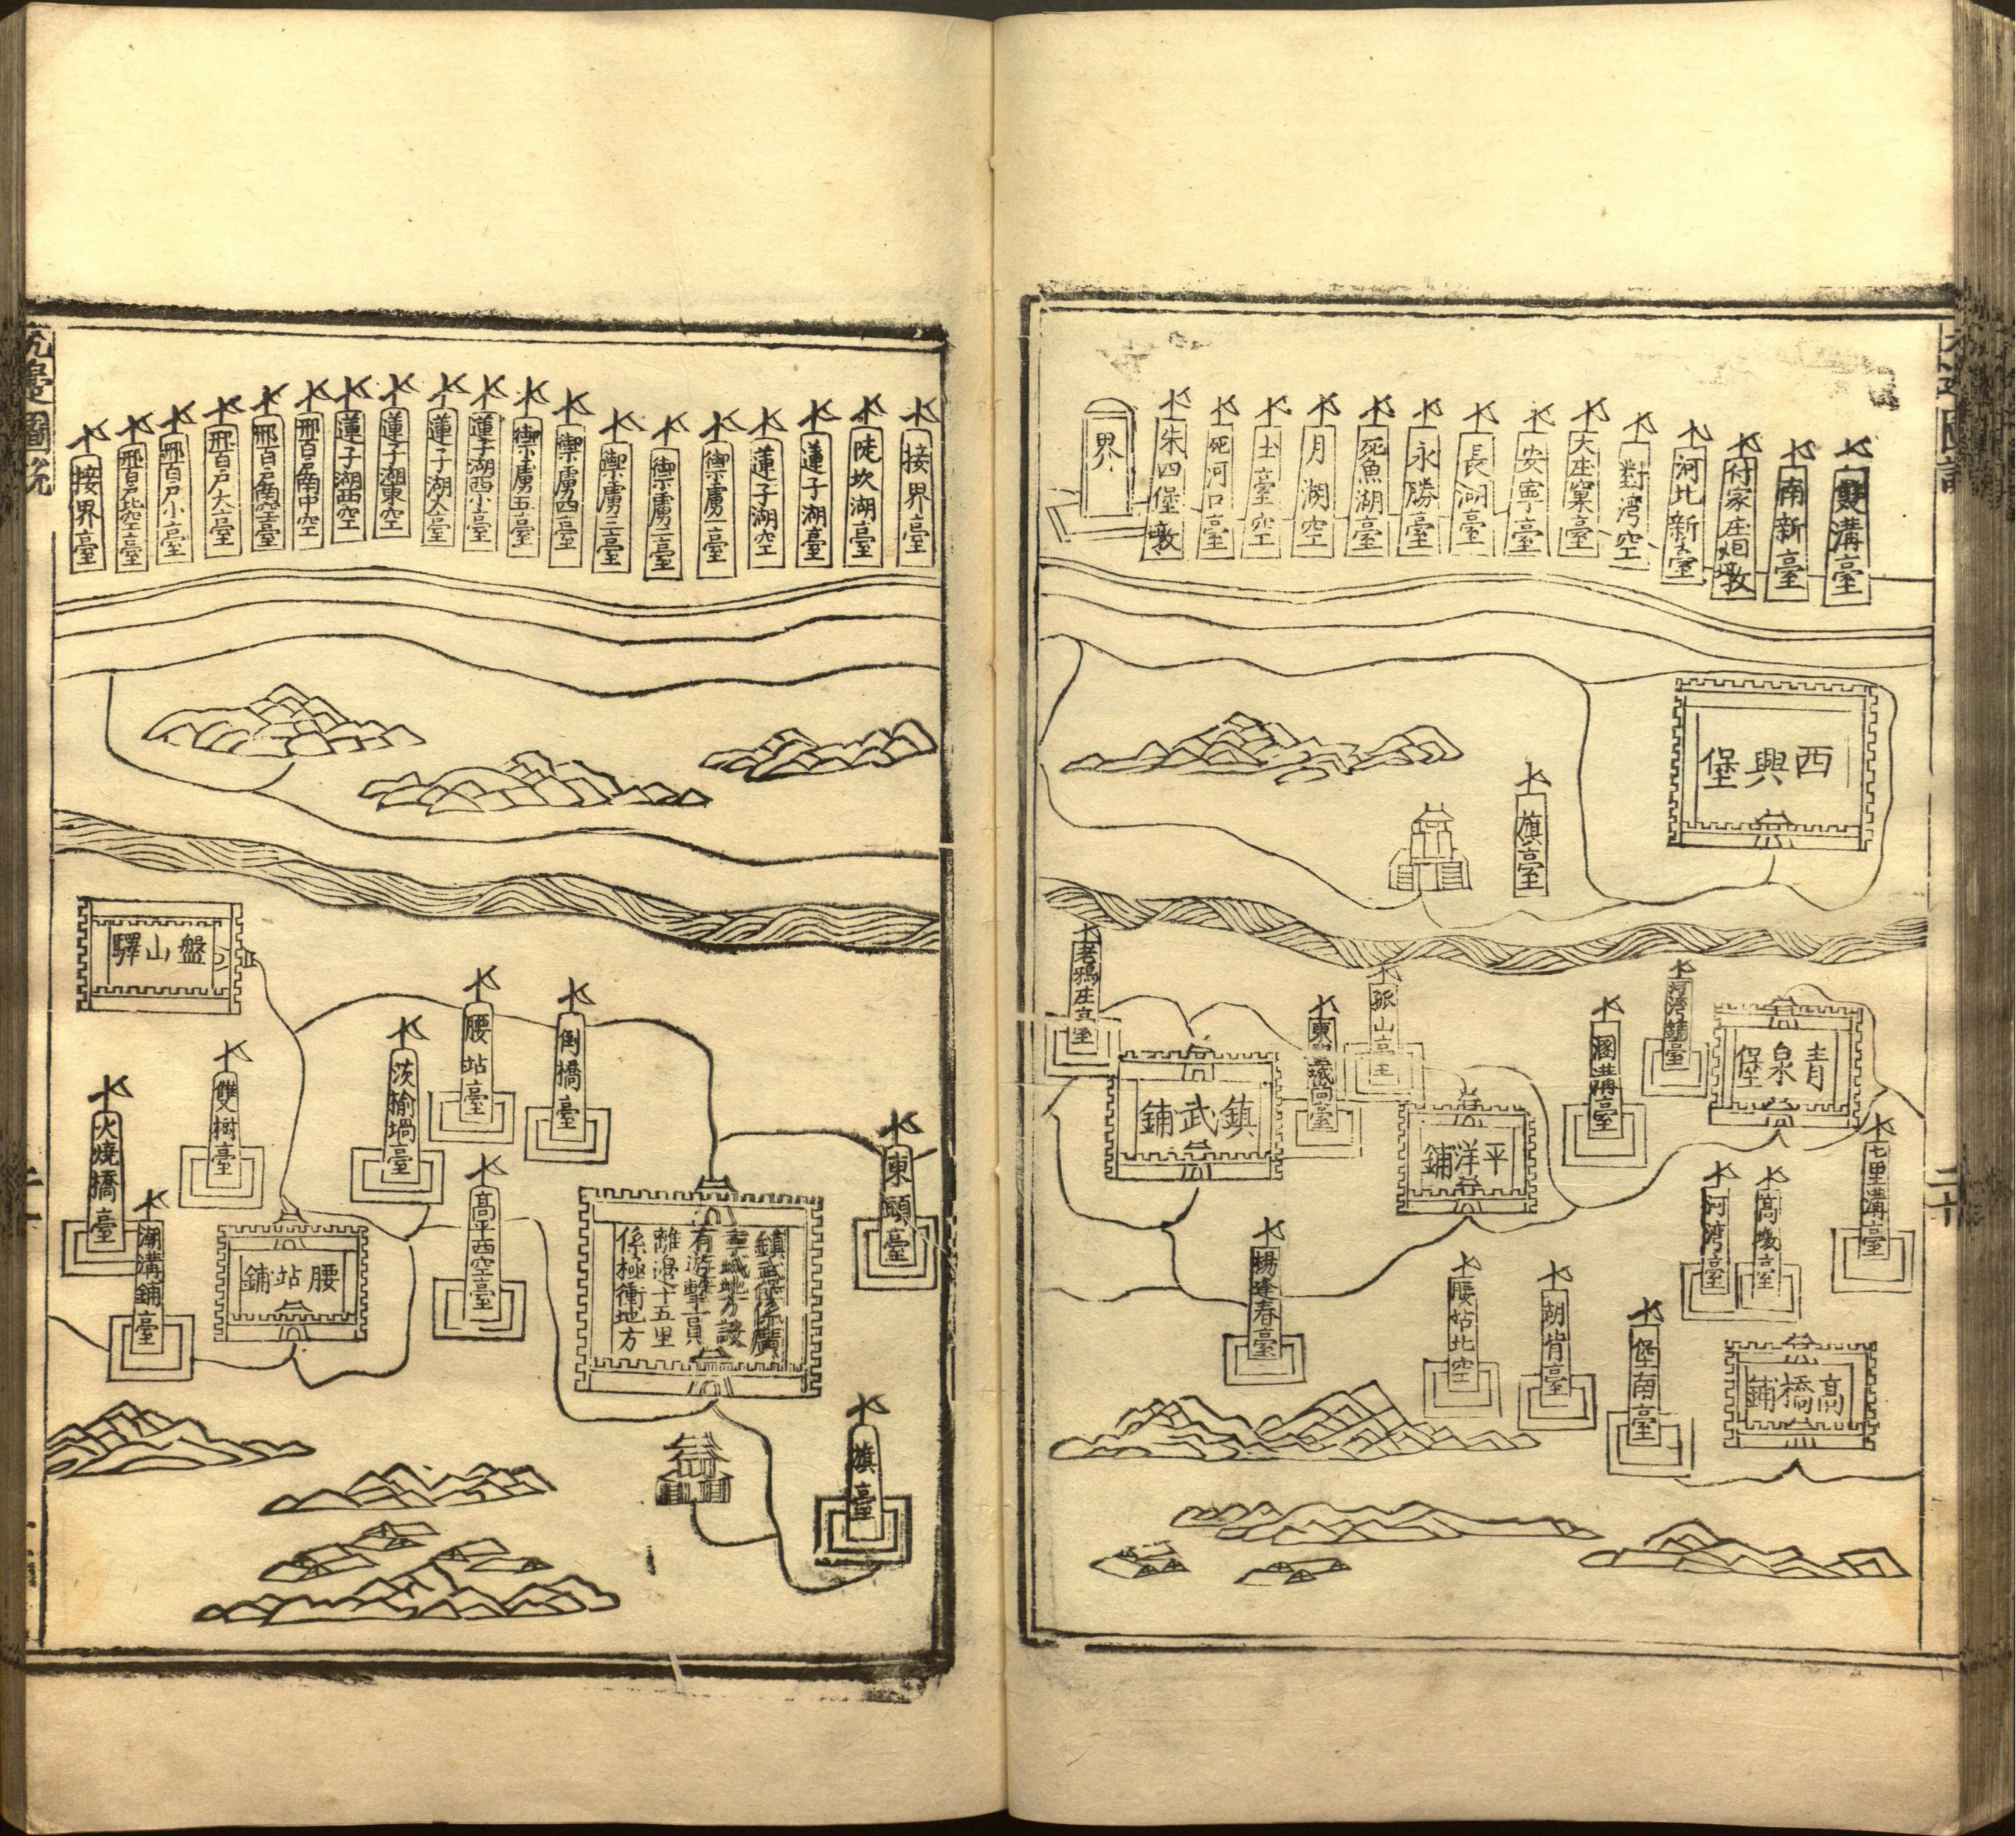 雙溝臺
南新臺
付家庄烟墩
河北新臺
對湾空
大庄窠臺
安寧臺
長湖臺
永勝臺
死魚湖臺
月湖空
土臺空
死河口臺
朱四堡墩
界
西興堡
旗臺
老鴉庄臺
孤山臺
鎮武鋪
平洋鋪
溷溝臺
青泉堡
七里溝臺
高墩臺
河湾臺
楊逢春臺
腰站北空
胡肯臺
堡南臺
高橋鋪
接界臺
陡坎湖臺
蓮子湖臺
蓮子湖空
禦虜一臺
禦虜二臺
禦虜三臺
禦虜四臺
禦虜五臺
蓮子湖西小臺
蓮子湖大臺
蓮子湖東空
蓮子湖西空
邢百戶南中空
邢百戶南空臺
邢百戶大臺
邢百戶小臺
邢百戶北空臺
接界臺
盤山驛
倒橋臺
腰站臺
茨榆堝臺
雙樹臺
火燒橋臺
潮溝鋪臺
腰站鋪
高平西空臺
東頭臺
鎮武堡係廣
寧城地方設
有遊擊一員
離邊十五里
係極衝地方
旗臺